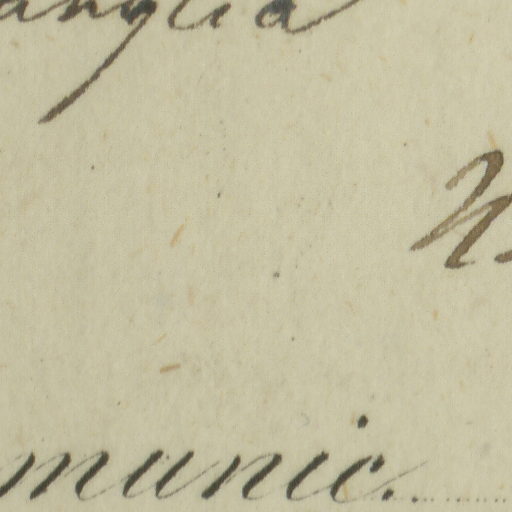 anglia
munic.